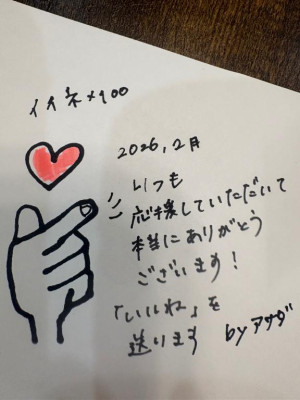 イイネ×100
2026,2月
いつも
応援していただいて
本当にありがとう
ございます!
「いいね」を
送ります byアサダ